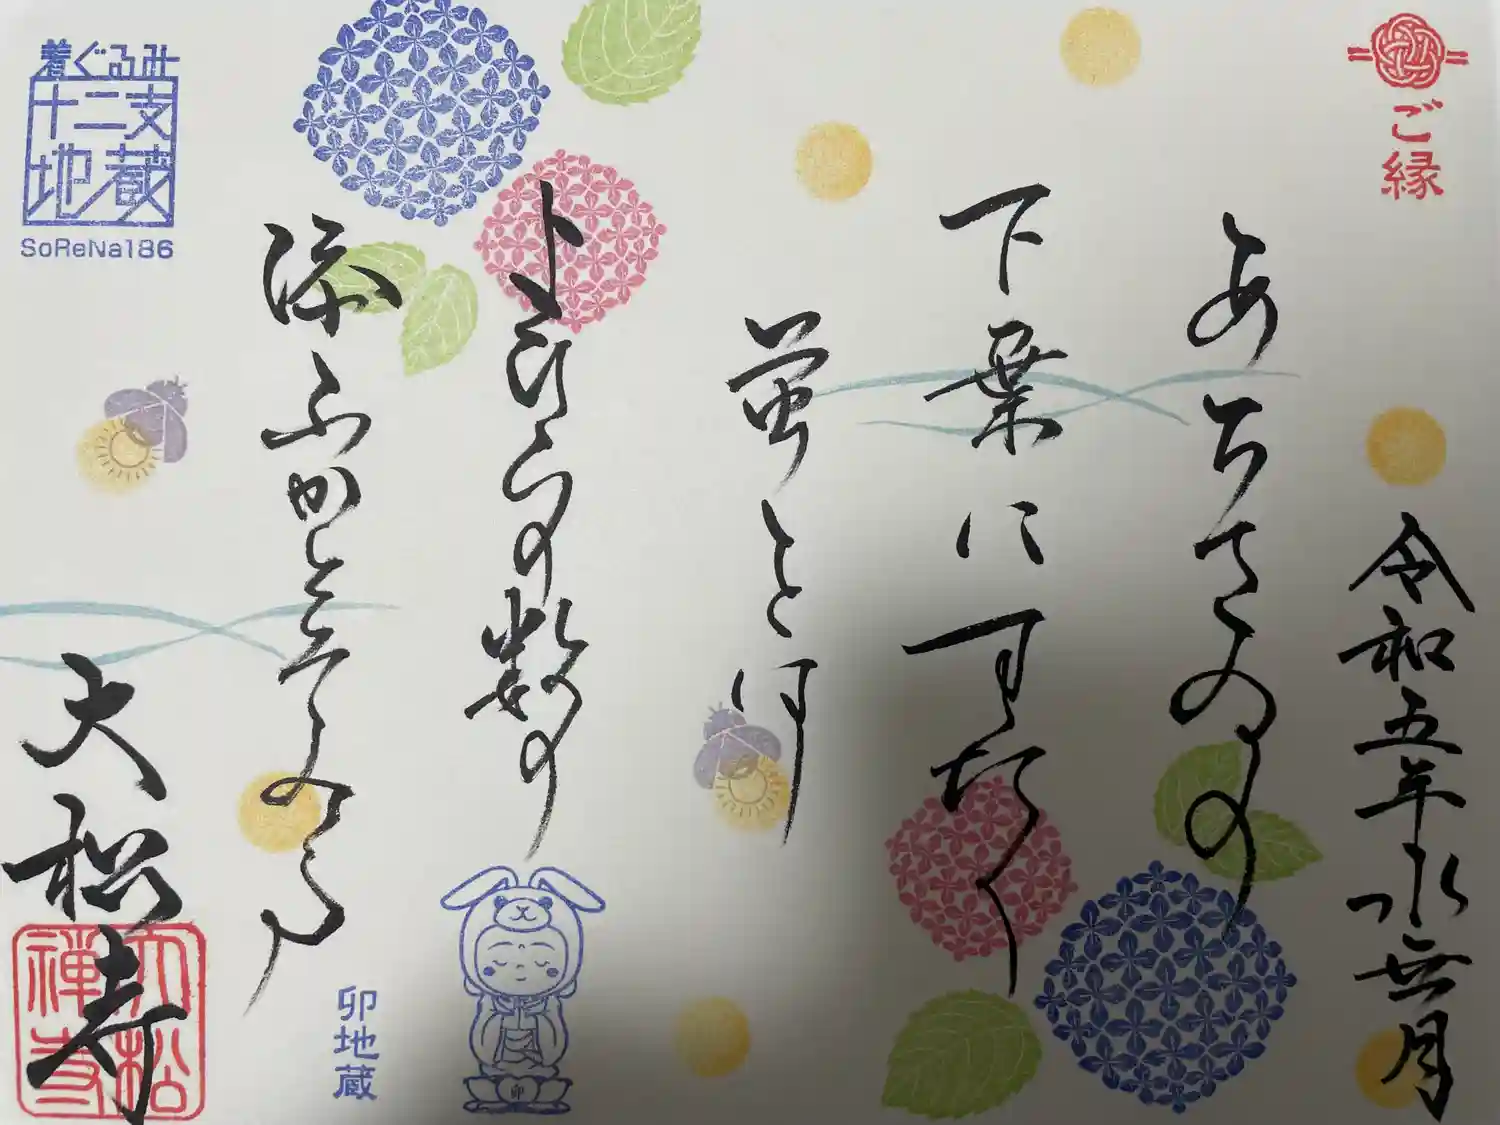 ご縁
令和五年水無月
あちさゐの
下葉にすたく
蛍をは
よひらの数の
添ふかとそみる
大松寺
大松禪寺
着ぐるみ
十二支
地蔵
SoReNa186
卯地蔵
卯